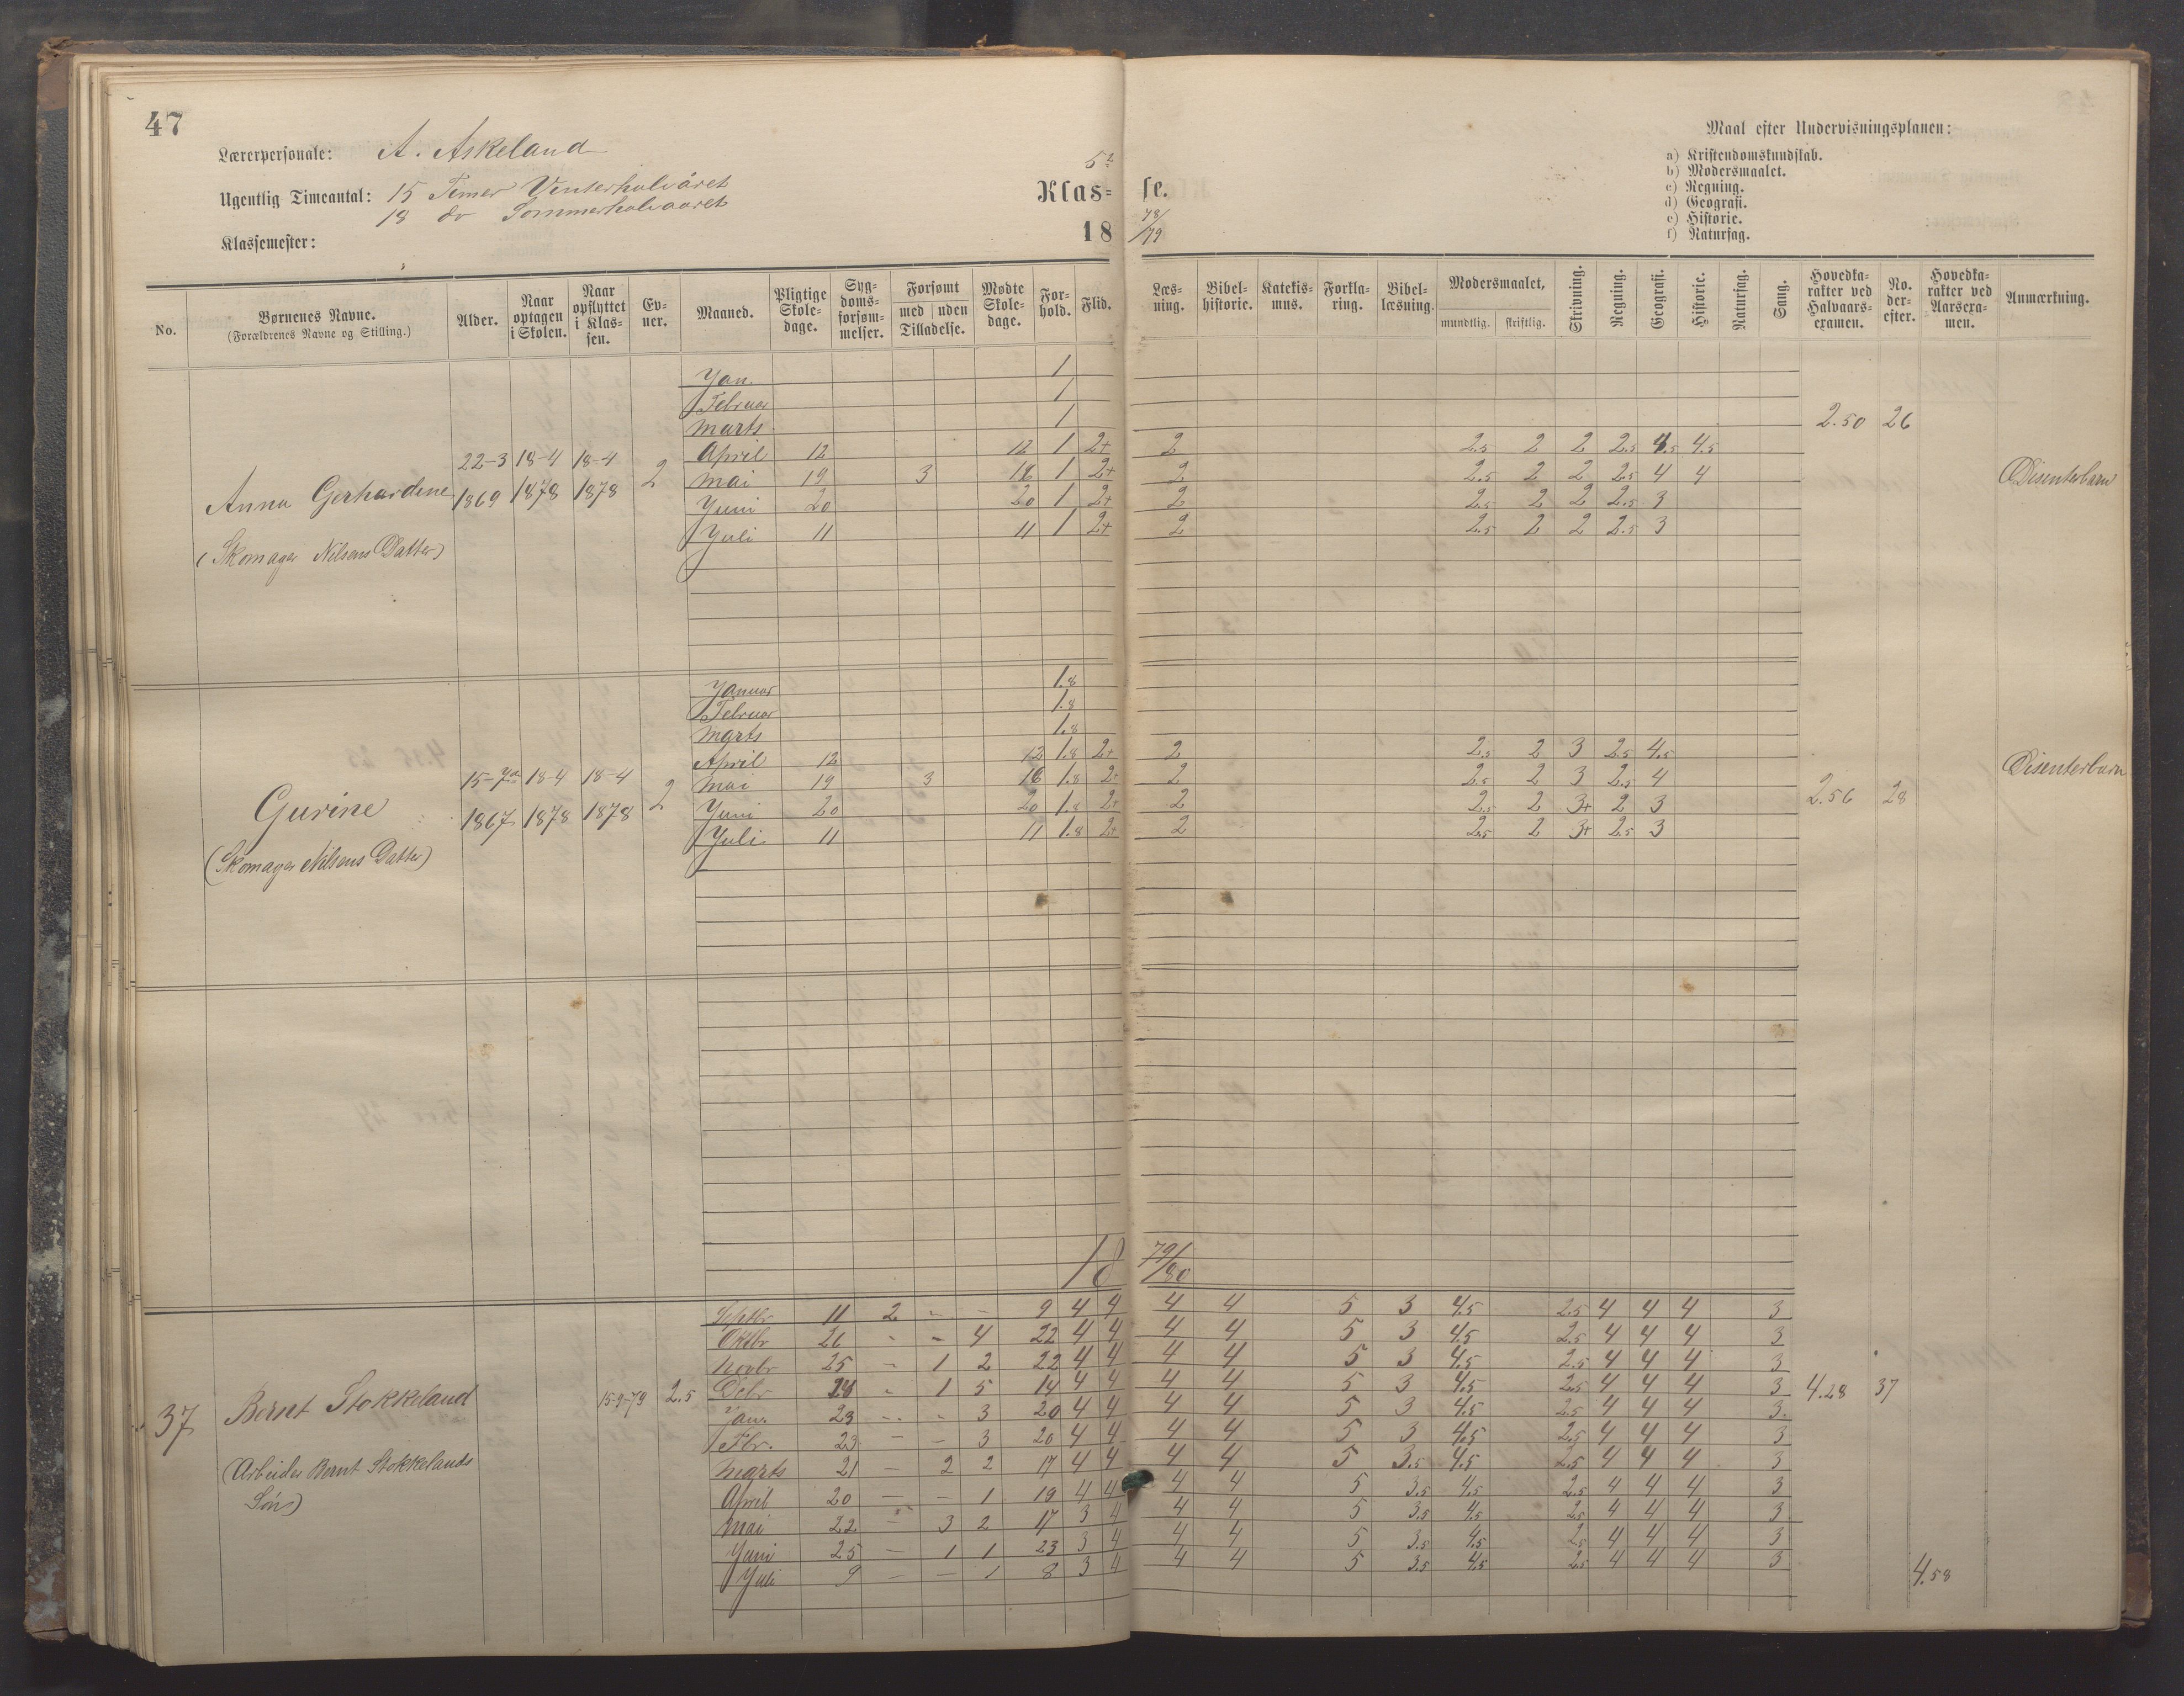 47
Lærerpersonale: A. Askeland
Ugentlig Timeantal: 15 Timer Vinterhalvåret
18 do Sommerhalvaaret
Klassemester:
5te
Klas- se.
18 78/79
Maal efter Undervisningsplanen:
a) Kristendomskundskab.
b) Modersmaalet.
c) Regning.
d) Geografi.
e) Historie.
f) Naturfag.
No. | Børnenes Navne. (Forældrenes Navne og Stilling.) | Alder. | Naar optagen i Skolen. | Naar opflyttet i Klassen. | Evner. | Maaned. | Pligtige Skoledage. | Sygdomsforsømmelser. | Forsømt med | uden Tilladelse. | Mødte Skoledage. | Forhold. | Flid. | Læsning. | Bibelhistorie. | Katekismus. | Forklaring. | Bibellæsning. | Modersmaalet, mundtlig. | skriftlig. | Skrivning. | Regning. | Geografi. | Historie. | Naturfag. | Sang. | Hovedkarakter ved Halvaarsexamen. | No. derefter. | Hovedkarakter ved Aarsexamen. | Anmærkning.
Anna Gerhardine
(Skomager Nilsens Datter)
22-3 1869 | 18-4 1878 | 18-4 1878 | 2
Jan. 1
Februar 1
Marts 1
April 12 12 1 2+ 2 2.5 2 2 2.5 4.5 4.5
Mai 19 3 16 1 2+ 2 2.5 2 2 2.5 4 4
Juni 20 20 1 2+ 2 2.5 2 2 2.5 3
Juli 11 11 1 2+ 2 2.5 2 2 2.5 3
2.50 26
Disenterbarn
Gurine
(Skomager Nilsens Datter)
1867 | 18-4 1878 | 18-4 1878 | 2
Januar 1.8
Februar 1.8
Marts 1.8
April 12 12 1.8 2+ 2 2.5 2 3 2.5 4.5
Mai 19 3 16 1.8 2+ 2 2.5 2 3 2.5 4
Juni 20 20 1.8 2+ 2 2.5 2 3+ 2 3
Juli 11 11 1.8 2+ 2 2.5 2 3+ 2.5 3
2.56 28
Disenterbarn
18 79/80
37
Bernt Stokkeland
(Arbeider Bernt Stokkelands
Søn)
15-9-79 2.5
Septbr 11 2 - - 9 4 4 4 4 5 3 4.5 2.5 4 4 4 3
Oktbr 26 - - 4 22 4 4 4 4 5 3 4.5 2.5 4 4 4 3
Novbr 25 - 1 2 22 4 4 4 4 5 3 4.5 2.5 4 4 4 3
Debr - 1 5 14 4 4 4 4 5 3 4.5 2.5 4 4 4 3
Jan. 23 - - 3 20 4 4 4 4 5 3 4.5 2.5 4 4 4 3
Fbr. 23 - - 3 20 4 4 4 4 5 3 4.5 2.5 4 4 4 3
Marts 21 - 2 2 17 4 4 4 4 5 3.5 4.5 2.5 4 4 4 3
April 20 - - 1 19 4 4 4 4 5 3.5 4.5 2.5 4 4 4 3
Mai 22 - 3 2 17 3 4 4 4 5 3.5 4.5 2.5 4 4 4 3
Juni 25 - 1 1 23 3 4 4 4 5 3.5 4.5 2.5 4 4 4 3
Juli 9 - - 1 8 3 4 4 4 5 3.5 4.5 2.5 4 4 4 3
4.28 37
4.58